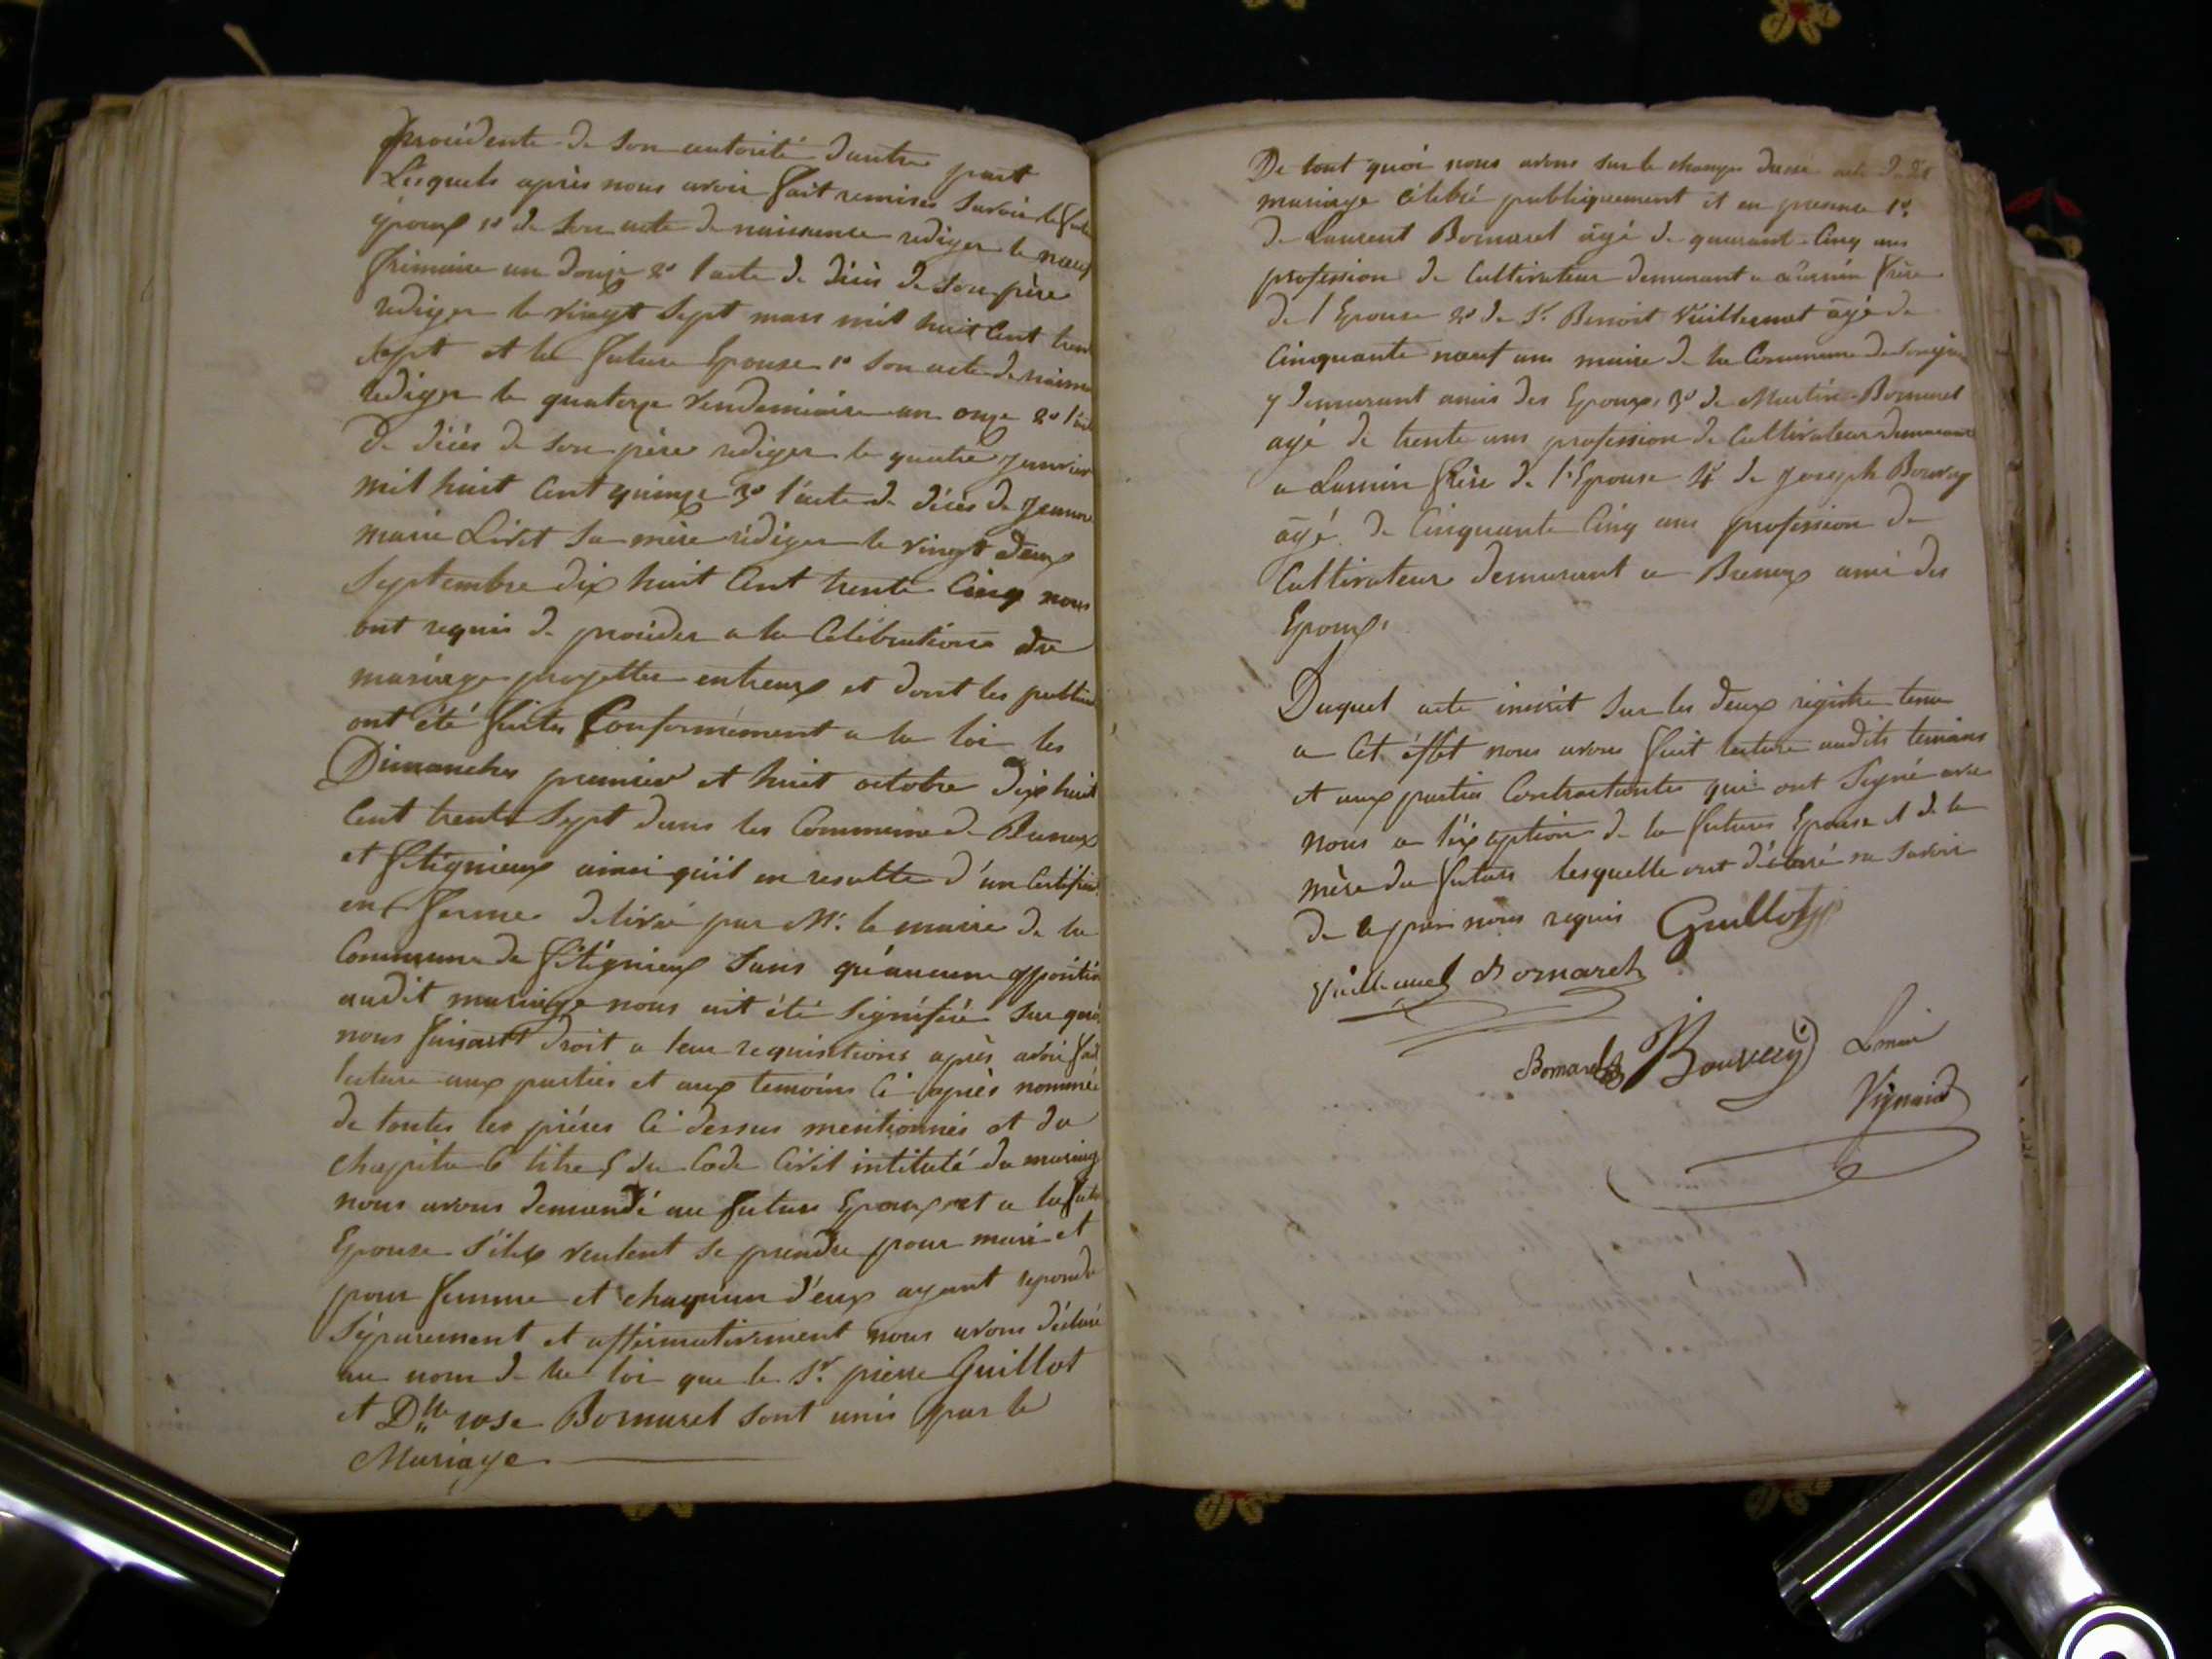 procédente de son autorité dautre part
Lesquels après nous avoir fait remises savoir le futur
époux 1º de son acte de naissance rediger le neuf
frimaire an douze 2º l'acte de décès de son père
rediger le vingt sept mars mil huit Cent trente
sept et la future Epouse 1º son acte de naissance
rediger le quatorze vendemiaire an onze 2º l'acte
de décès de son père rediger le quatre janvier
mil huit Cent quinze 3º l'acte de décès de jeanne
marie Livet sa mère rédiger le vingt deux
Septembre dix huit Cent trente Cinq nous
ont requis de procéder a la Célébration du
mariage projetter entreux et dont les public
ont été faites Conformément a la loi les
Dimanches premier et huit octobre dix huit
Cent trente Sept dans les Commune de Brenaz
et fitignieux ainsi qu'il en resulte d'un Certificat
en forme délivré par Mr. le maire de la
Commune de fitignieux Sans qu'aucune opposition
audit mariage nous ait été Signifiée Sur quoi
nous faisant droit a leur requisitions après avoir fait
lecture aux parties et aux temoins Ci après nommé
de toutes les pièces Ci dessus mentionnés et du
chapitre 6 titre 5 du Code Civil intitulé du mariage
nous avons demandé au futur Epoux et a la future
Epouse S'ils veulent se prendre pour mari et
pour femme et chaquun d'eux ayant repondu
Séparement et affirmativement nous avons déclaré
au nom de la loi que le Sr. pierre Guillot
et Dlle rose Bornarel sont unis par le
Mariage.
De tout quoi nous avons sur le champ dressé acte dudit
mariage célébré publiquement et en presence 1º.
de Laurent Bornarel âgé de quarant-Cinq ans
profession de Cultivateur demeurant a frère
de l'Epouse 2º de Sr. Benoit Vuillermet âgé de
Cinquante neuf ans maire de la Commune de Songieu
y demeurant amis des Epoux, 3º de Martin Bornarel
agé de trente ans profession de Cultivateur demeurant
a frère de l'Epouse 4º de joseph Bouvay
âgé de Cinquante Cinq ans profession de
Cultivateur demeurant a Brenaz ami des
Epoux.
Duquel acte inscrit Sur les deux registre tenu
a Cet éffet nous avons fait lecture audits temoins
et aux parties Contractantes qui ont Signé avec
nous a l'éxception de la future Epouse et de la
mère du futur lesquelle ont déclaré ne Savoir
de ce par nous requis Guillot
Bornarel
Bornarel Bouvay Lmaire
Vignaid